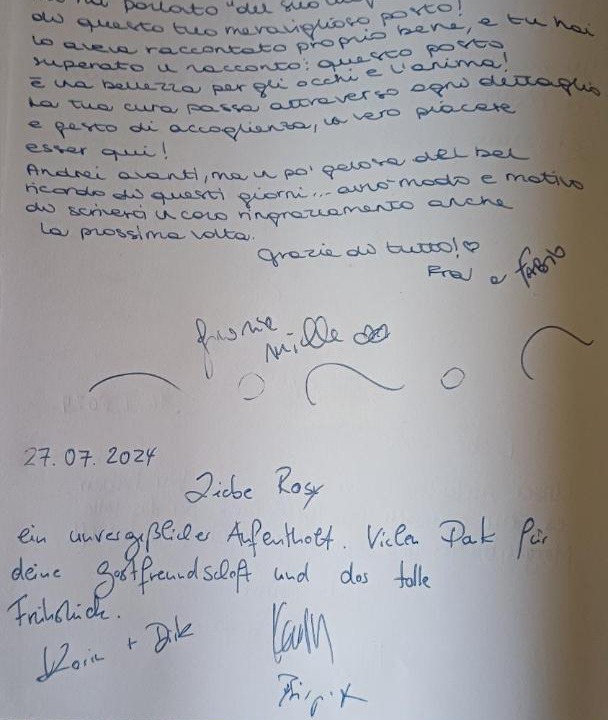 parlato "del suo
di questo tuo meraviglioso posto!
lo aveva raccontato proprio bene, e tu hai
superato il racconto: questo posto
è una bellezza per gli occhi e l'anima!
La tua cura passa attraverso ogni dettaglio
e gesto di accoglienza, un vero piacere
esser qui!
Andrei avanti, ma un po' gelosa del bel
ricordo di questi giorni... avrò modo e motivo
di scriverci un caro ringraziamento anche
la prossima volta.
grazie di tutto! ♡
Fra e Fabio
grazie
mille
27.07.2024
Liebe Rosy
ein unvergeßlicher Aufenthalt. Vielen Dak für
deine Gastfreundschaft und das tolle
Frühstück.
+ Dik